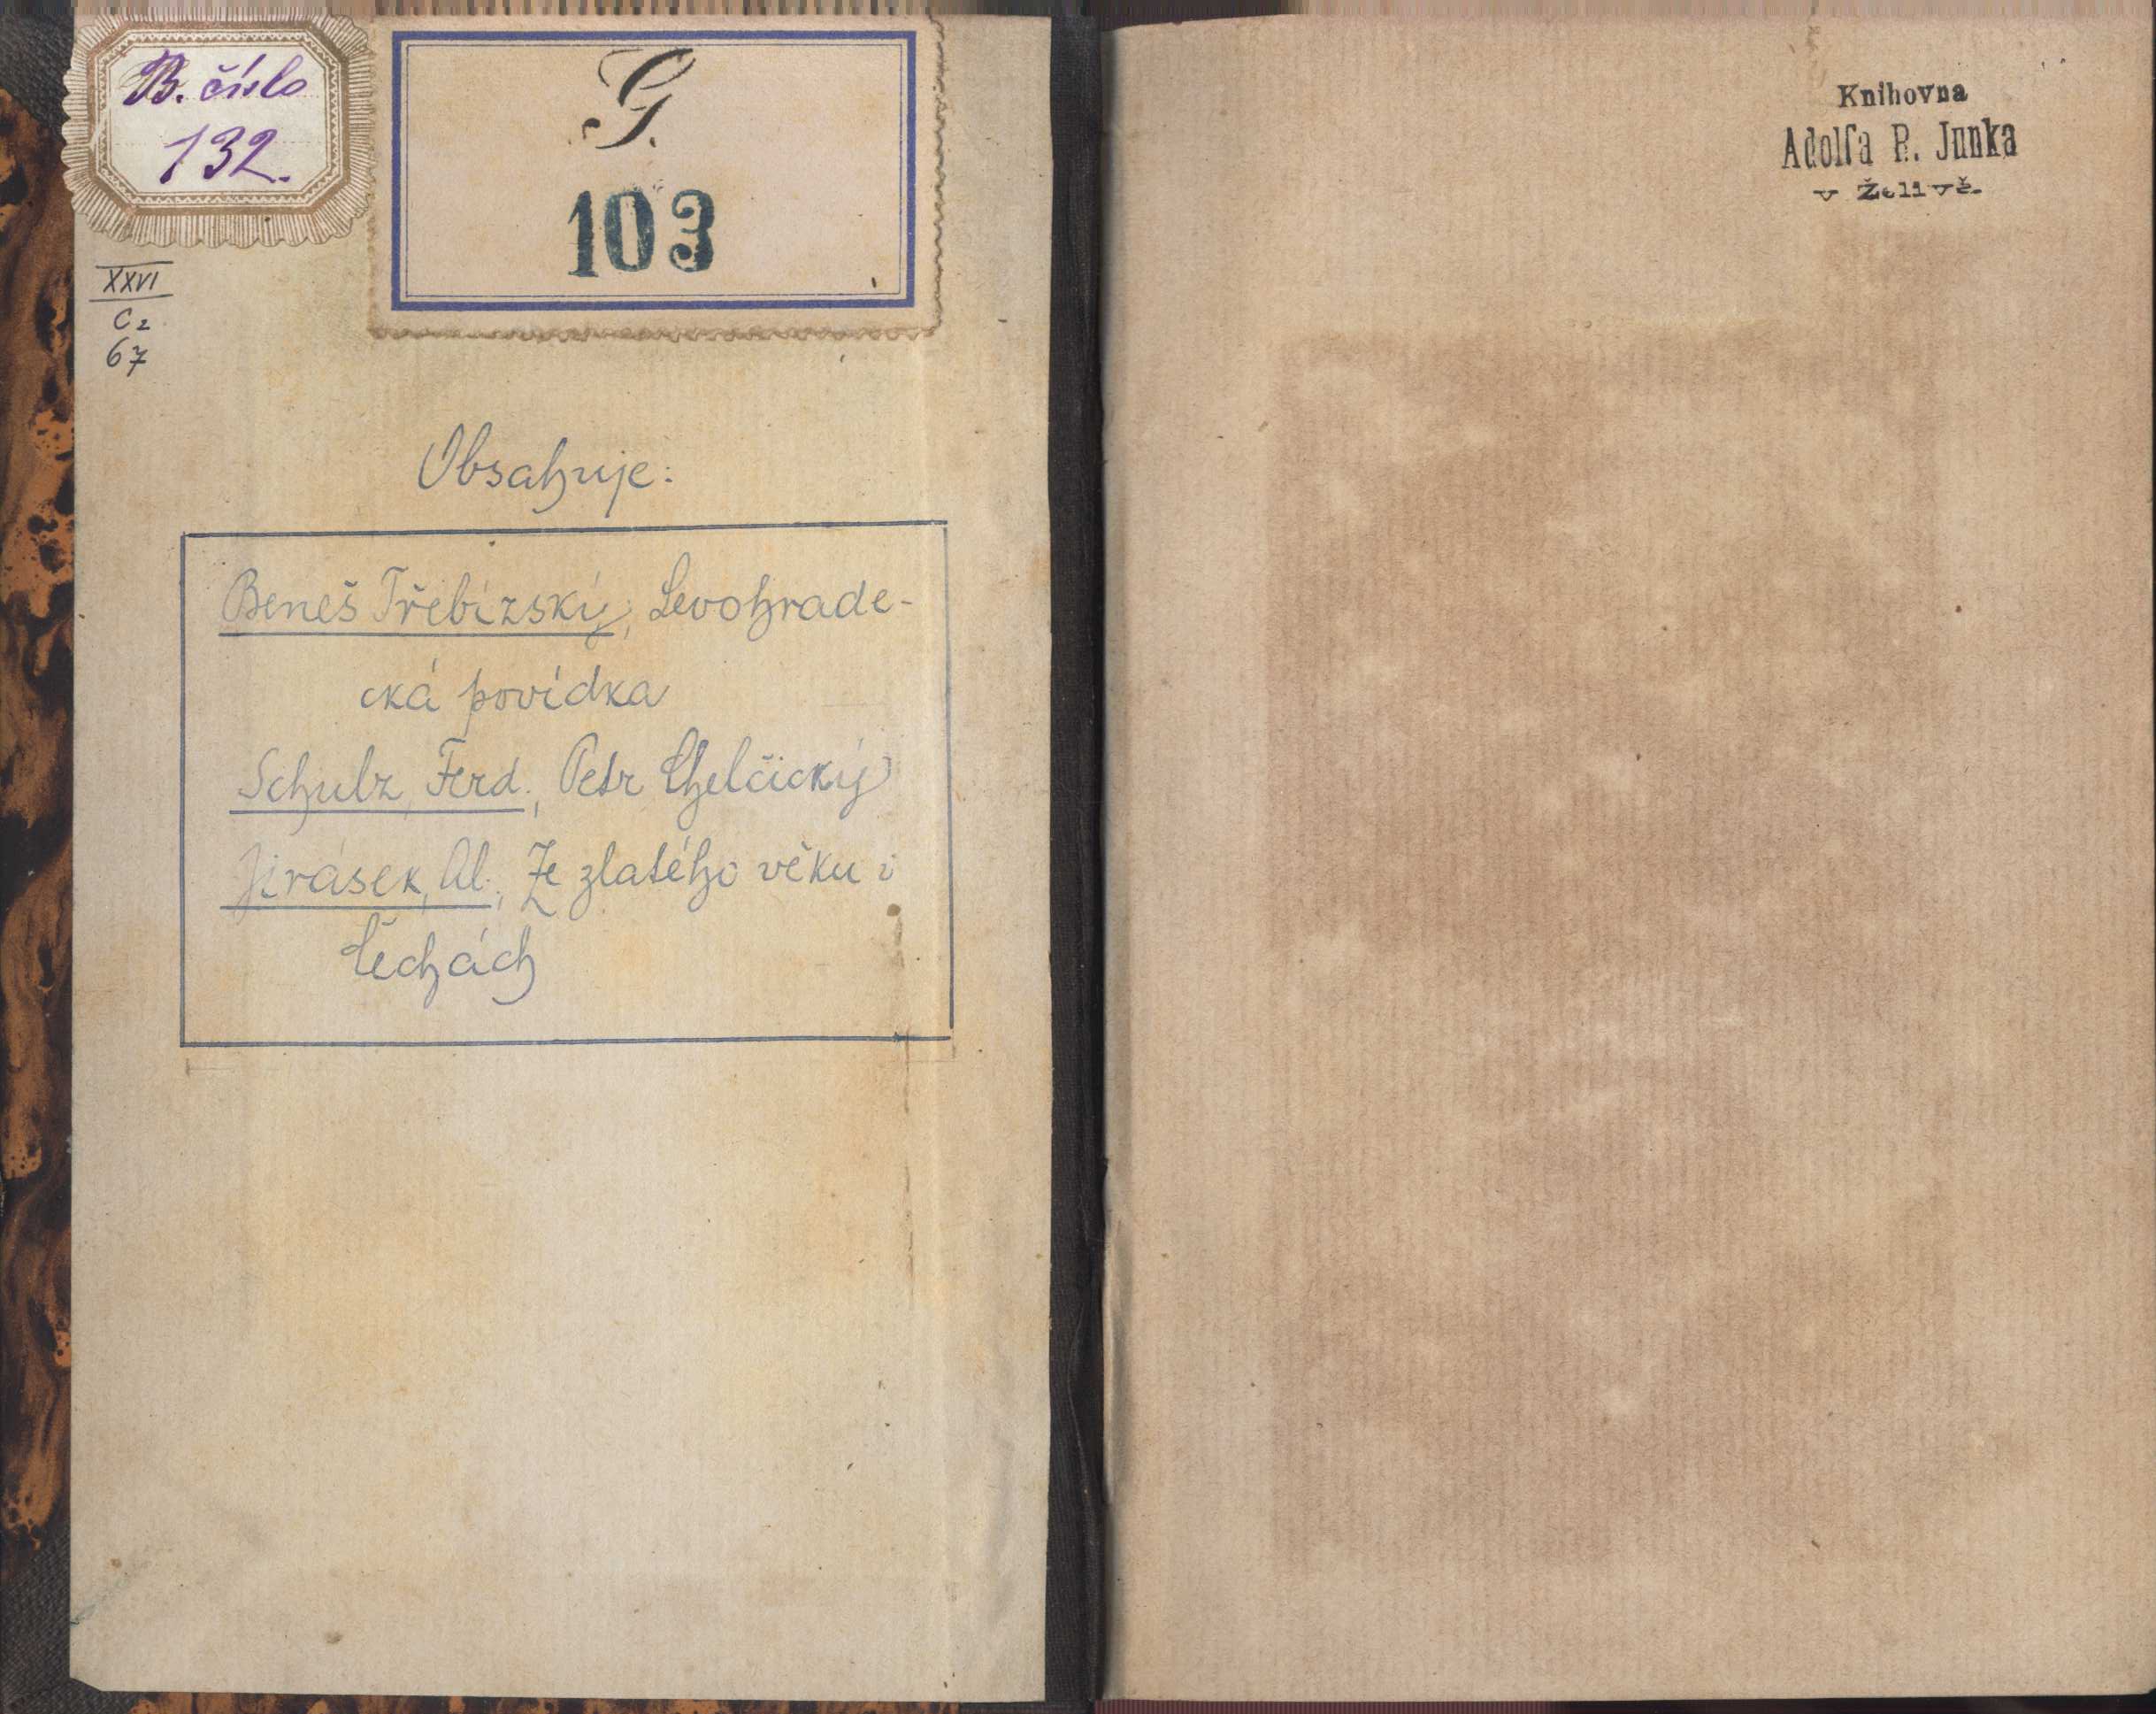 B. číslo
132.
G.
103
XXVI
C2
67
Obsahuje:
Beneš Třebízský, Levohrade-
cká povídka
Schulz, Ferd., Petr Chelčický
Jirásek, Al., Ze zlatého věku v
Čechách
Knihovna
Adolfa R. Junka
v Želivě.